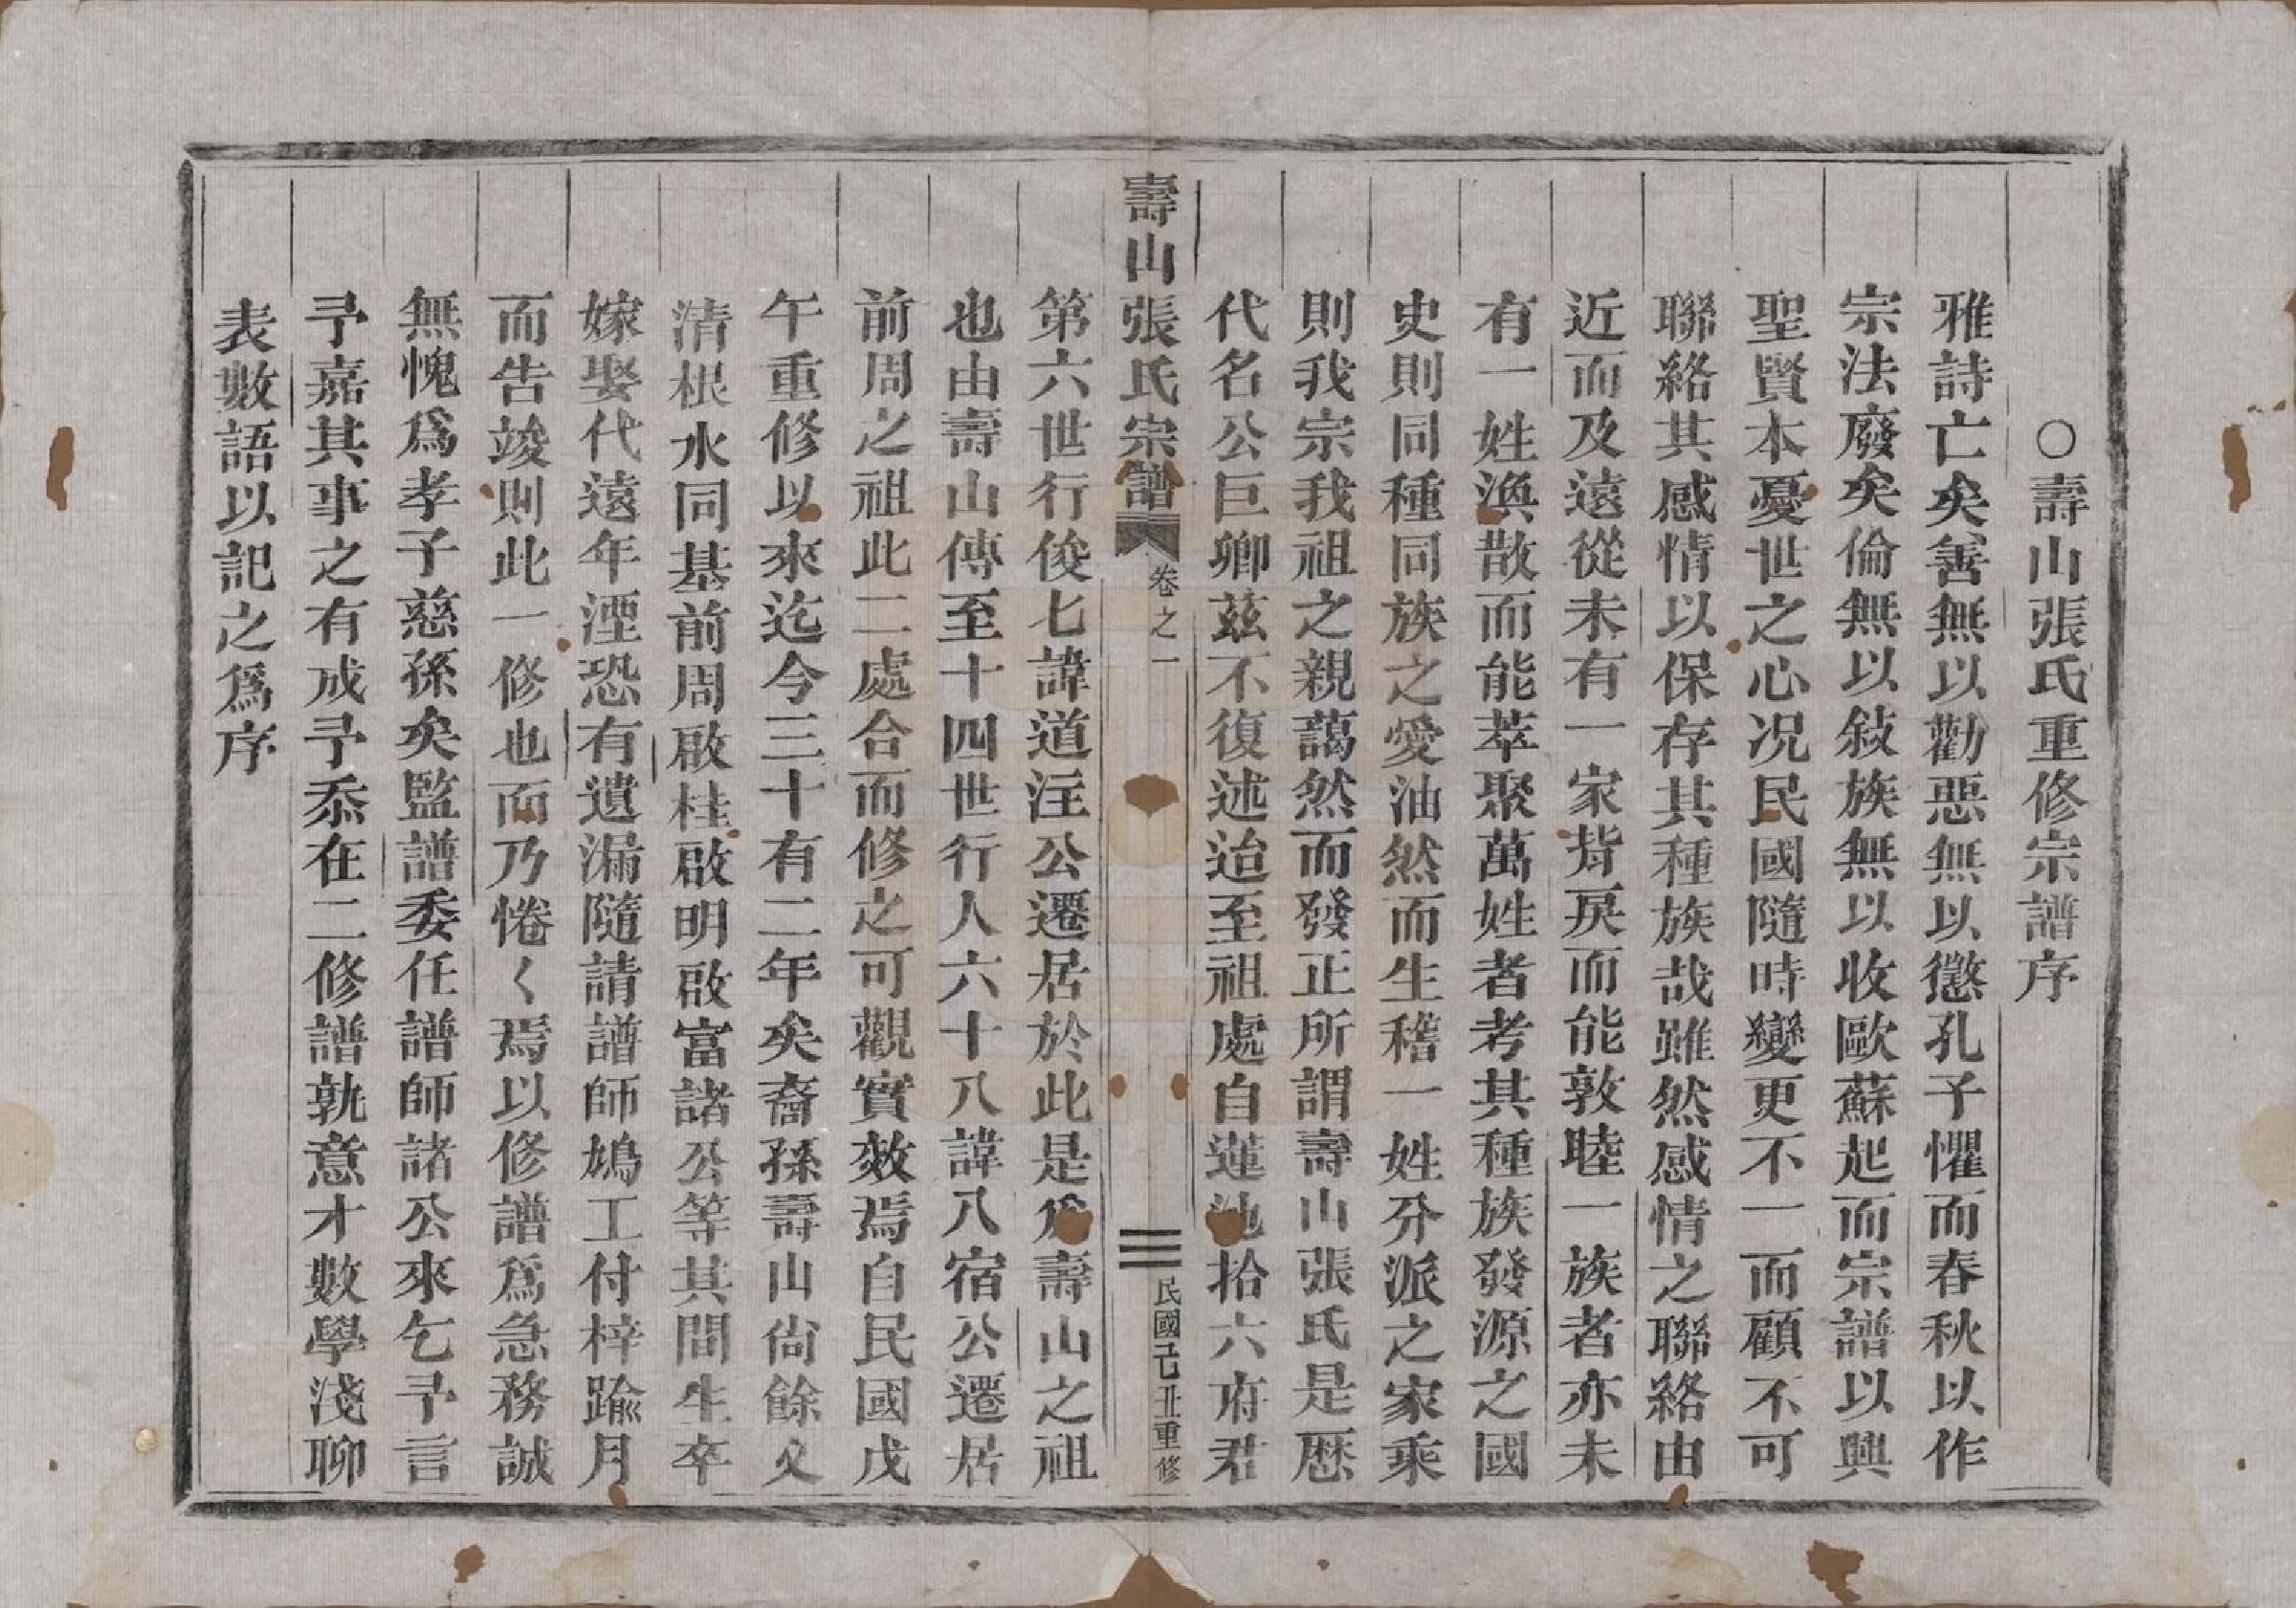 ○壽山張氏重修宗譜序
雅詩亡矣善無以勸惡無以懲孔子懼而春秋以作
宗法廢矣倫無以敍族無以收歐蘇起而宗譜以興
聖賢本憂世之心况民國隨時變更不一而顧不可
聯絡其感情以保存其種族哉雖然感情之聯絡由
近而及遠從未有一家背戾而能敦睦一族者亦未
有一姓渙散而能萃聚萬姓者考其種族發源之國
史則同種同族之愛油然而生稽一姓分派之家乘
則我宗我祖之親藹然而發正所謂壽山張氏是歷
代名公巨卿茲不復述迨至祖處自蓮池拾六府君
壽山張氏宗譜 卷之一 三 民國己丑重修
第六世行俊七諱道注公遷居於此是爲壽山之祖
也由壽山傳至十四世行人六十八諱八宿公遷居
前周之祖此二處合而修之可觀實效焉自民國戊
午重修以來迄今三十有二年矣裔孫壽山尙餘乆
清根水同基前周啟桂啟明啟富諸公等其間生卒
嫁娶代遠年湮恐有遺漏隨請譜師鳩工付梓踰月
而告竣則此一修也而乃惓〱焉以修譜爲急務誠
無愧爲孝子慈孫矣監譜委任譜師諸公來乞予言
予嘉其事之有成予忝在二修譜執意才數學淺聊
表數語以記之爲序